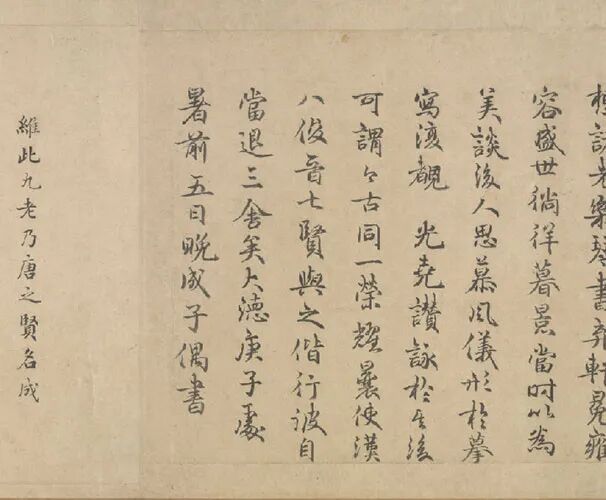 老樂琴書弃軒冕雍
容盛世徜徉暮景當時以為
美談後人思慕風儀形於摹
寫復覩 光堯讃詠於生後
可謂今古同一榮耀曩使漢
八俊晉七賢與之偕行彼自
當退三舍矣大德庚子處
暑前五日晚成子偶書
維此九老乃唐之賢名成